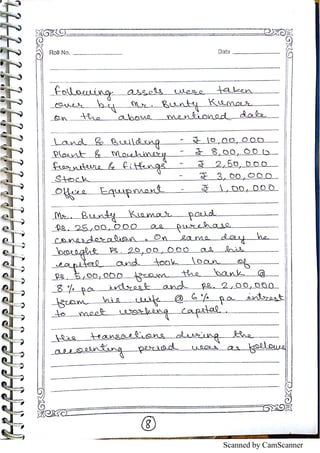 Roll No. Date
Following assets were taken
over by Mr. Bunty Kumar
on the above mentioned date
Land & Building - ₹ 10,00,000
Plant & Machinery - ₹ 8,00,000
Furniture & Fittings - ₹ 2,50,000
Stock - ₹ 3,00,000
Office Equipment - ₹ 1,00,000
Mr. Bunty Kumar paid
Rs. 25,00,000 as purchase
consideration. On same day he
bought Rs. 20,00,000 as his
capital and took loan of
Rs. 5,00,000 from the bank @
8% pa intrest and Rs. 2,00,000
from his wife @ 6% pa intrest
to meet working capital.
His transactions during the
accounting period was as follows
8
Scanned by CamScanner